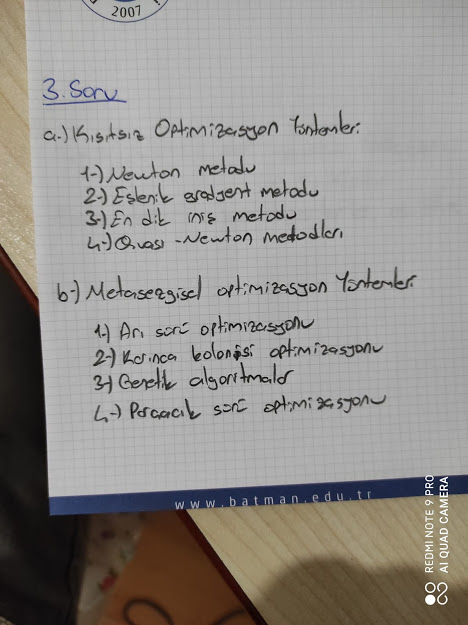 2007
3. Soru
a-) Kısıtsız Optimizasyon Yöntemleri
1-) Newton metodu
2-) Eşlenik gradyent metodu
3-) En dik iniş metodu
4-) Quası-Newton metodları
b-) Metasezgisel optimizasyon Yöntemleri
1-) Arı sürü optimizasyonu
2-) Karınca kolonisi optimizasyonu
3-) Genetik algoritmalar
4-) Parçacık sürü optimizasyonu
www.batman.edu.tr
REDMI NOTE 9 PRO
AI QUAD CAMERA